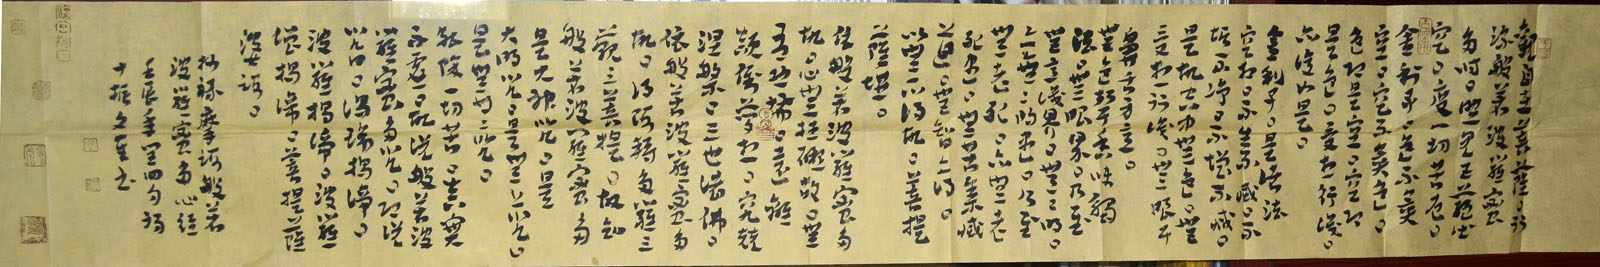 觀自在菩薩々行
深般若波羅蜜
多時々照見五蘊皆
空々度一切苦厄々
舍利子々色不異
空々空不異色々
色即是空々空即
是色々受想行識々
亦復如是々
舍利子々是諸法
空相々不生不滅々不
垢不淨々不增不減々
是故空中無色々無
受想行識々無眼耳
鼻舌身意々
無色聲香味觸
法々無眼界々乃至
無意識界々無無明々
亦無無明盡々乃至
無老死々亦無老
死盡々無苦集滅
道々無智亦無得々
以無所得故々菩提
薩埵々
依般若波羅蜜多
故々心無挂礙々無
有恐怖々遠離
顛倒夢想々究竟
涅槃々三世諸佛々
依般若波羅蜜多
故々得阿耨多羅三
藐三菩提々故知
般若波羅蜜多
是大神咒々是
大明咒々是無上咒々
是無等等咒々
能除一切苦々真實
不虛々故說般若波
羅蜜多咒々即說
咒曰々揭諦揭諦々
波羅揭諦々波羅
僧揭諦々菩提薩
婆訶々
抄錄摩訶般若
波羅蜜多心經
壬辰年